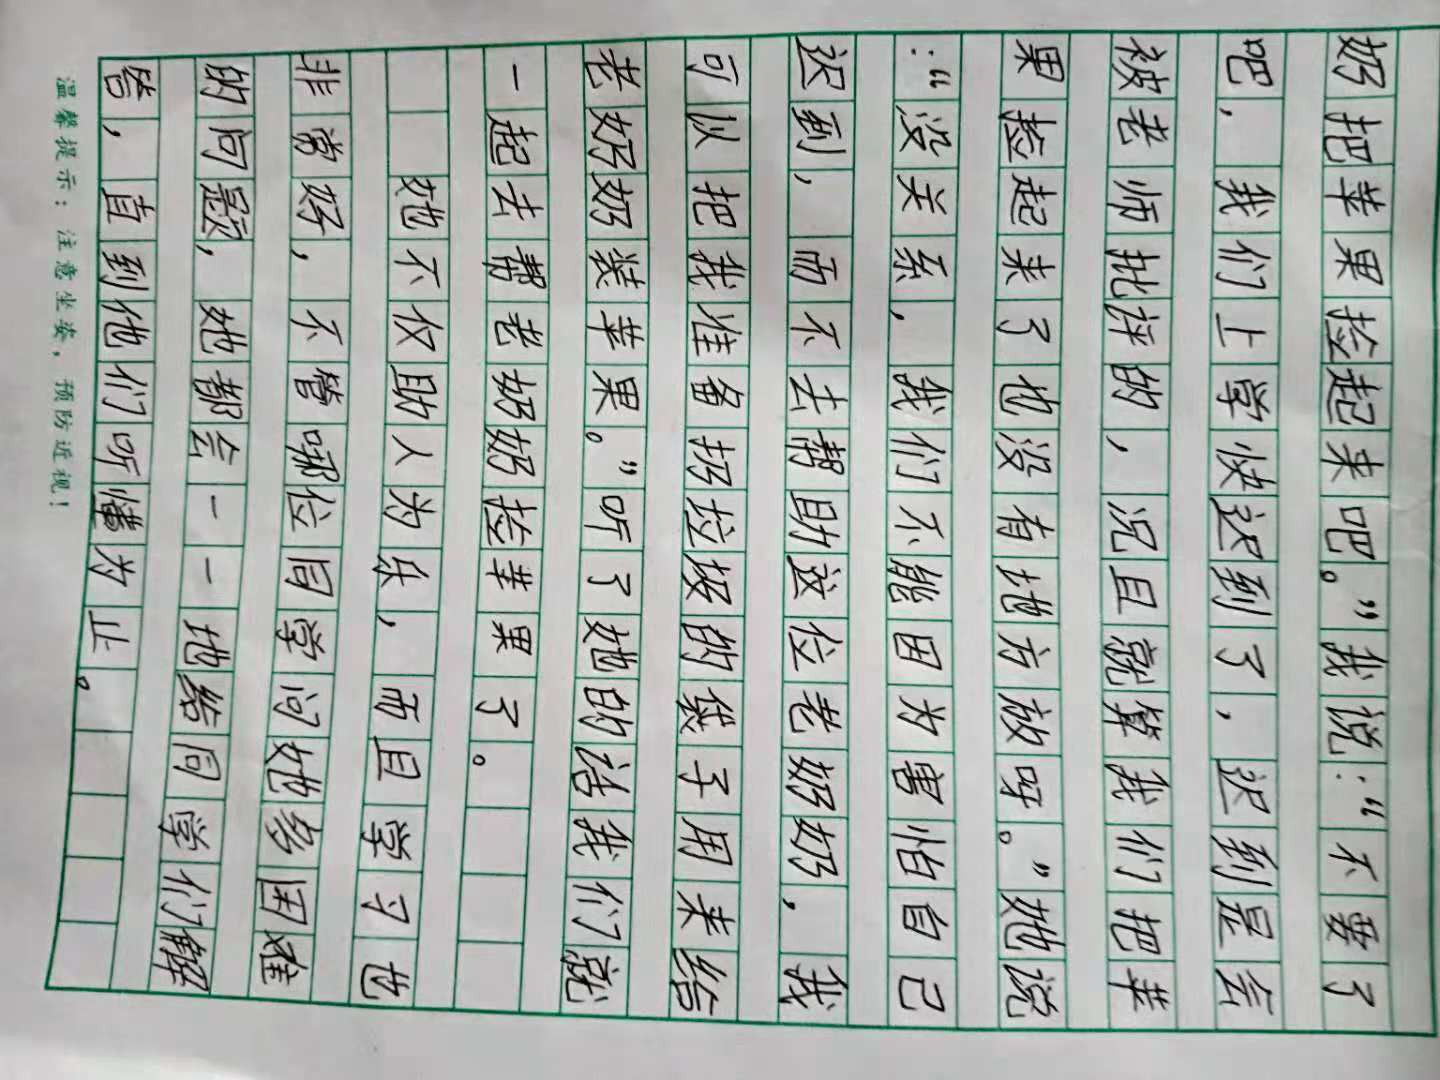 奶把苹果捡起来吧。”我说：“不要了
吧，我们上学快迟到了，迟到是会
被老师批评的，况且就算我们把苹
果捡起来了也没有地方放呀。”她说
：“没关系，我们不能因为害怕自己
迟到，而不去帮助这位老奶奶，我
可以把我准备扔垃圾的袋子用来给
老奶奶装苹果。”听了她的话我们就
一起去帮老奶奶捡苹果了。
她不仅助人为乐，而且学习也
非常好，不管哪位同学问她多困难
的问题，她都会一一地给同学们解
答，直到他们听懂为止。
温馨提示：注意坐姿，预防近视！